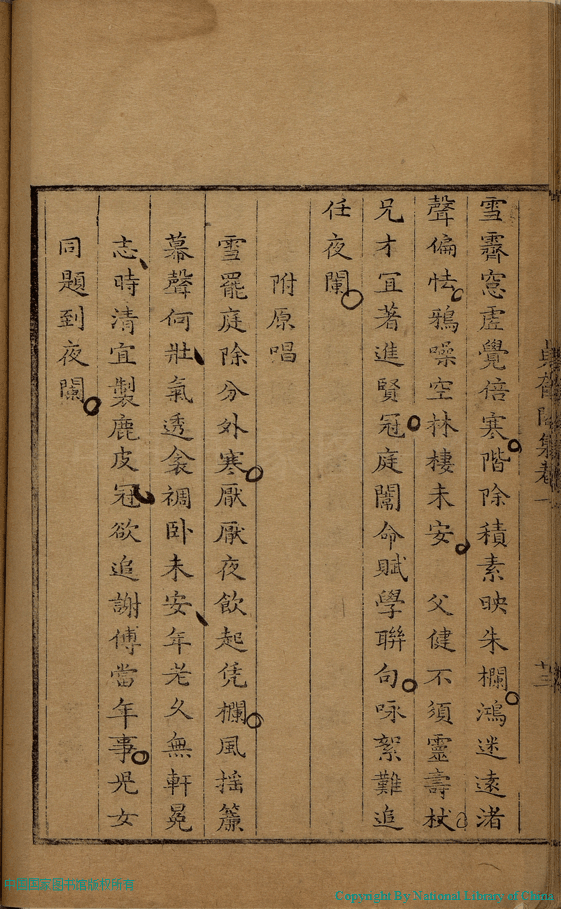 雪霽窓虛覺倍寒階除積素映朱欄鴻迷遠渚
聲偏怯鴉噪空林棲未安　父健不須靈壽杖
兄才冝著進賢冠庭闈命賦學聯句咏絮難追
任夜闌
附原唱
雪罷庭除分外寒厭厭夜飲起凭欄風搖簾
幕聲何壯氣透衾裯卧未安年老久無軒冕
志時清宜製鹿皮冠欲追謝傅當年事児女
同題到夜闌
十三
Copyright By National Library of China